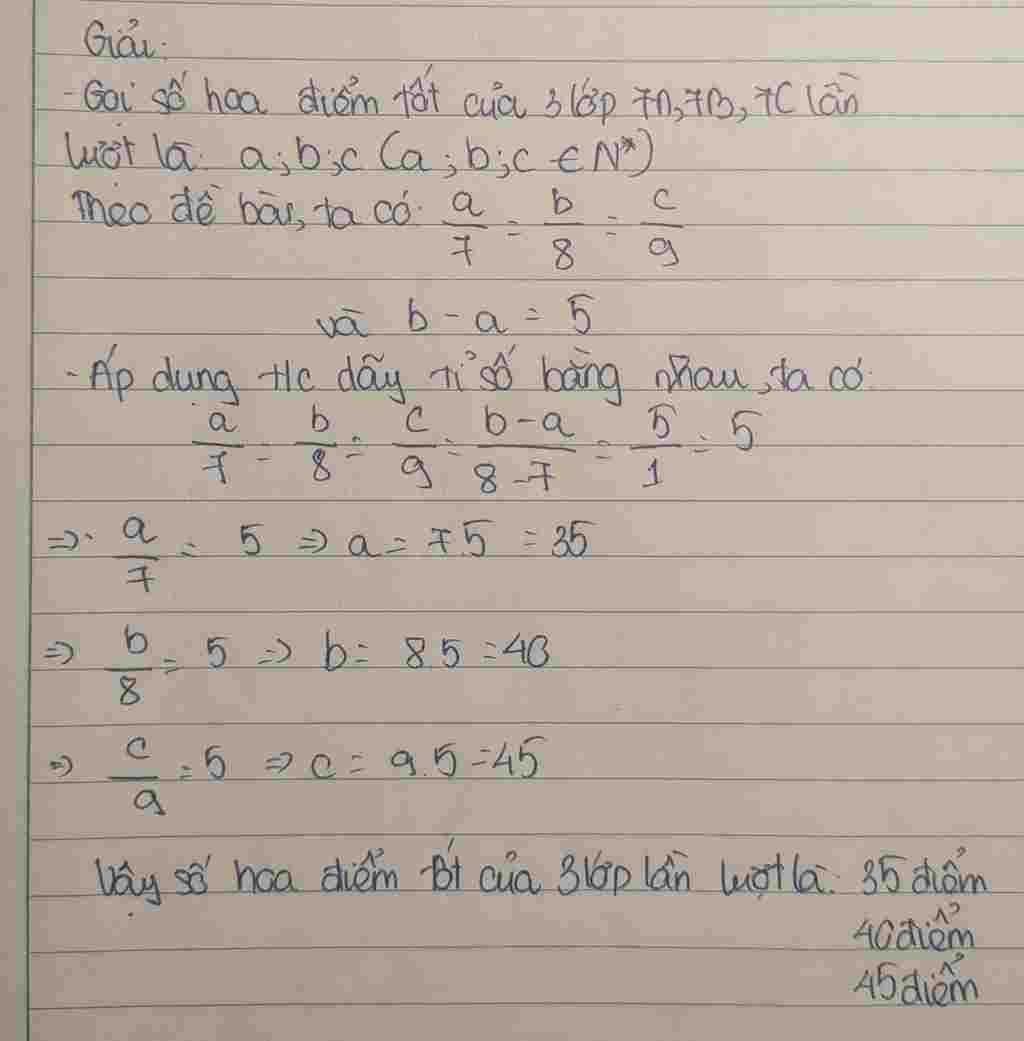 Giải:
- Gọi số hoa điểm tốt của 3 lớp 7A, 7B, 7C lần
lượt là: a; b; c (a; b; c ∈ N*)
Theo đề bài, ta có: a/7 = b/8 = c/9
và b - a = 5
- Áp dụng t/c dãy tỉ số bằng nhau, ta có:
a/7 = b/8 = c/9 = b-a/8-7 = 5/1 = 5
=> a/7 = 5 => a = 7.5 = 35
=> b/8 = 5 => b = 8.5 = 40
=> c/9 = 5 => c = 9.5 = 45
Vậy số hoa điểm tốt của 3 lớp lần lượt là: 35 điểm
40 điểm
45 điểm